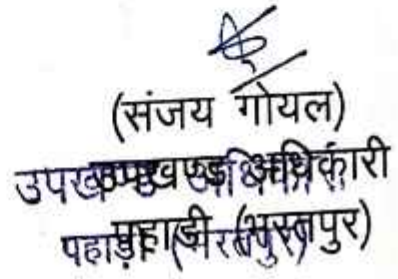 (संजय गोयल)
उपखण्ड अधिकारी
पहाड़ी (भरतपुर)
उपखण्ड अधिकारी
पहाड़ी (भरतपुर)